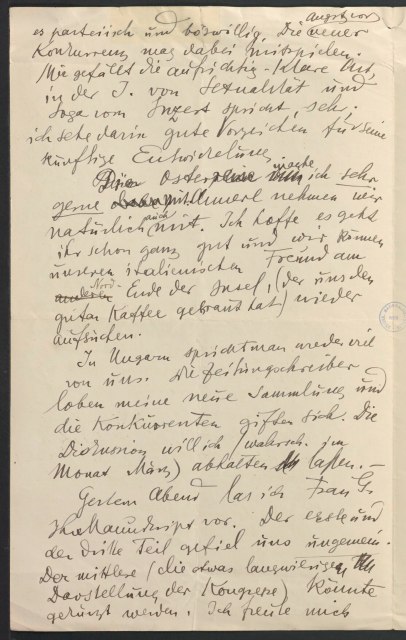 Angst vor
es parteiisch und böswillig. Die neuer
Konkurrenz mag dabei mitspielen.
Mir gefällt die aufrichtig-klare Art,
in der J. von Sexualität und
sogar vom Inzest spricht, sehr.
ich sehe darin gute Vorzeichen für seine
künftige Entwickelung.
Die Osterreise möchte ich sehr
gerne mit Ihnen nehmen wir
natürlich auch mit. Ich hoffe es geht
ihr schon ganz gut und wir können
unseren italienischen Freund am
Nord-
Ende der Insel, (der uns den
guten Kaffee gebraut hat) wieder
aufsuchen.
In Ungarn spricht man wieder viel
von uns. Die Zeitungschreiber
loben meine neue Sammlung und
die Konkurrenten giften sich. Die
Diskussion will ich (wahrsch. im
Monat März) abhalten lassen. –
Gestern Abend las ich Frau G.
Ihr Manuskript vor. Der erste und
der dritte Teil gefiel uns ungemein.
Der mittlere (die etwas langwierige
Darstellung der Kongresse) könnte
gekürzt werden. Ich freute mich